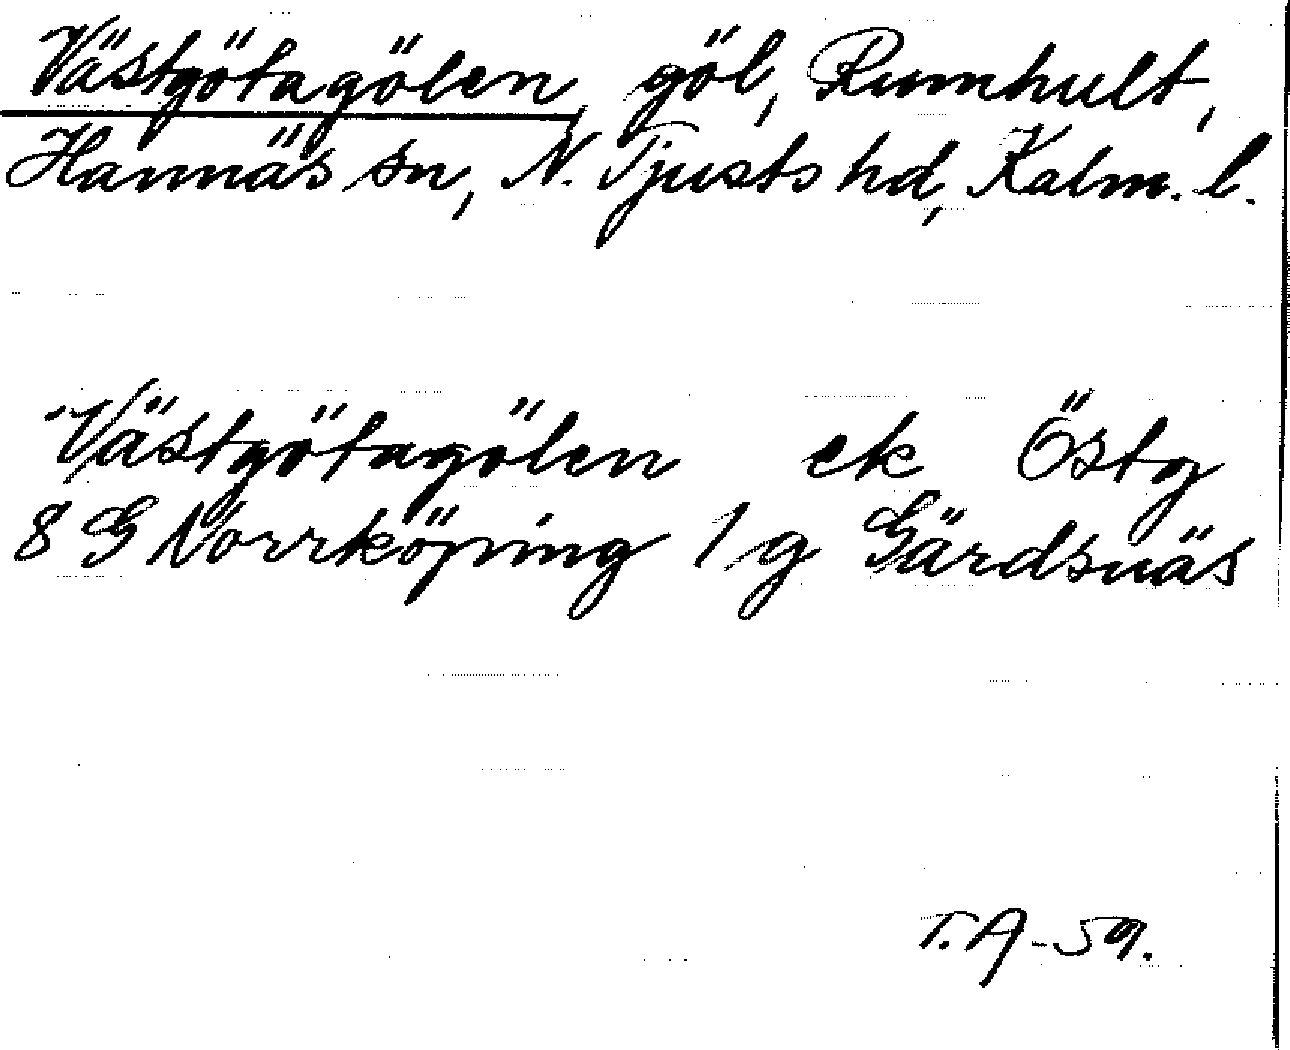 Västgötagölen, göl, Rumhult,
Hannäs sn, N. Tjusts hd, Kalm. l.
Västgötagölen ek Östg
8 G Norrköping 1 g Gärdsnäs
T. A -59.